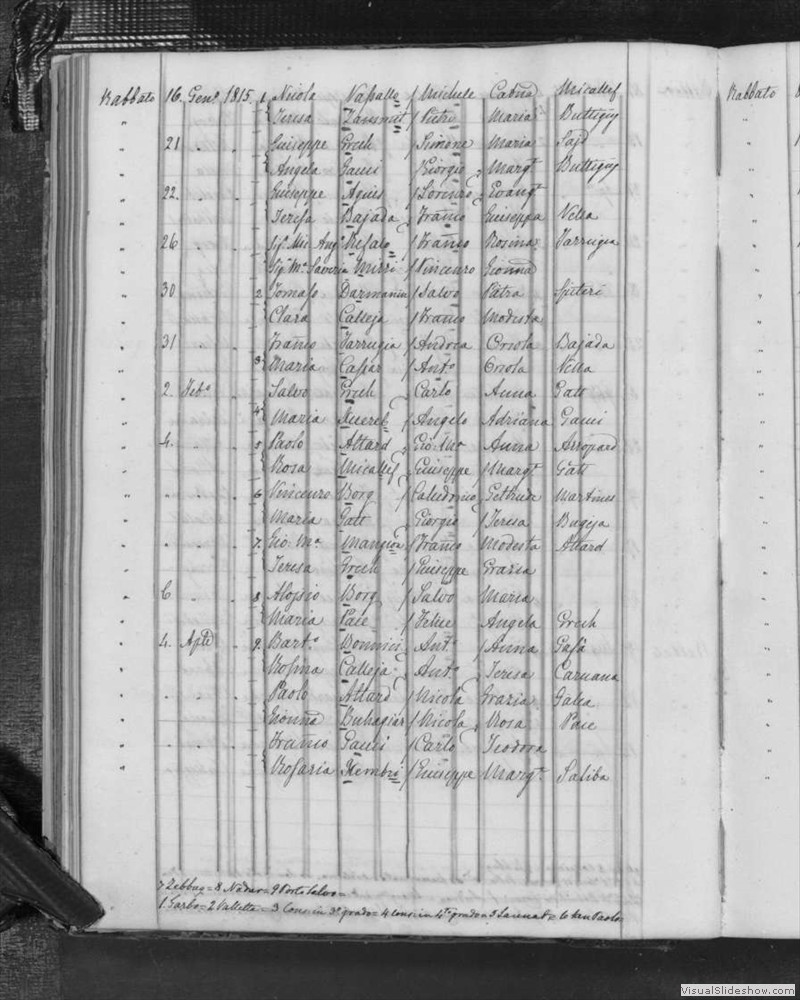 Rabbato 16. Genº 1815. 1 Nicola Vassallo / Michele Catnã Micallef Rabbato
" Teresa Zammit / Pietro Maria Buttigieg
" 21 . . Giuseppe Grech / Simone Maria Said
" Angela Gauci / Giorgio Margt Buttigieg
" 22. . . Giuseppe Agius / Lorenzo Evangt
" Teresa Bajada / Franco Giuseppa Vella
" 26 . . Sigr Mic Angº Refalo / Franco Rosina Farrugia
" Sigª Mª Saveria Mizzi / Vincenzo Gionnã
" 30 . . 2 Tomaso Darmanin / Salvo Petra Spiteri
" Clara Calleja / Franco Modesta
" 31 . . Franco Farrugia / Andrea Orsola Bajada
" 3 Maria Caspar / Antº Orsola Vella
" 2. Febº . Salvo Grech / Carlo Anna Gatt
" 4 Maria Xuereb / Angelo Adriana Gauci
" 4. . . 5 Paolo Attard / Gio: Mª Anna
" Rosa Micallef / Giuseppe / Margt Gatt
" . . . 6 Vincenzo Borg / Calcedonio Geltrude Martines
" Maria Gatt Giorgio / Teresa Bugeja
" . . . 7. Gio: Mª Mangion / Franco Modesta Attard
" Teresa Grech / Giuseppe Grazia
" 6 . . 8 Aloysio Borg / Salvo Maria
" Maria Pace / Felice Angela Grech
" 4. Aple . 9. Bartº Bonnici / Antº / Anna Gafà
" Rosina Calleja / Antº Teresa Caruana
" . . . Paolo Attard / Nicola Grazia Galea
" Gionnã Buhagiar / Nicola Rosa Pace
" . . . Franco Gauci / Carlo Teodora
" Rosaria Xembri / Giuseppe Margt. Saliba
7 Zebbug = 8 Nadur = 9 Porto Salvo =
1. Garbo = 2 Valletta = 3 Cons: in 3º grado = 4 cons: in 4to grado = 5 Sannat = 6 San Paolo
VisualSlideshow.com